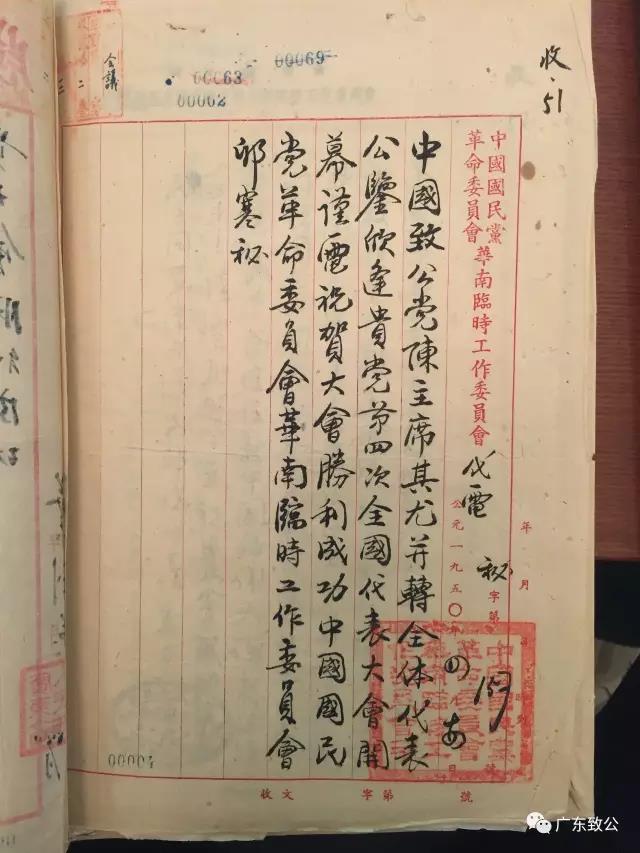 會議
00063
00069
00002
收·51
中國國民黨
革命委員會
華南臨時工作委員會
代電
年 月
秘字第
公元一九五〇年四月
中國致公党陳主席其尤并轉全体代表
公鑒欣逢貴党第四次全國代表大會開
幕謹電祝賀大會勝利成功中國國民
党革命委員會華南臨時工作委員會
卯寒秘
收文 字第 號
00004
广东致公